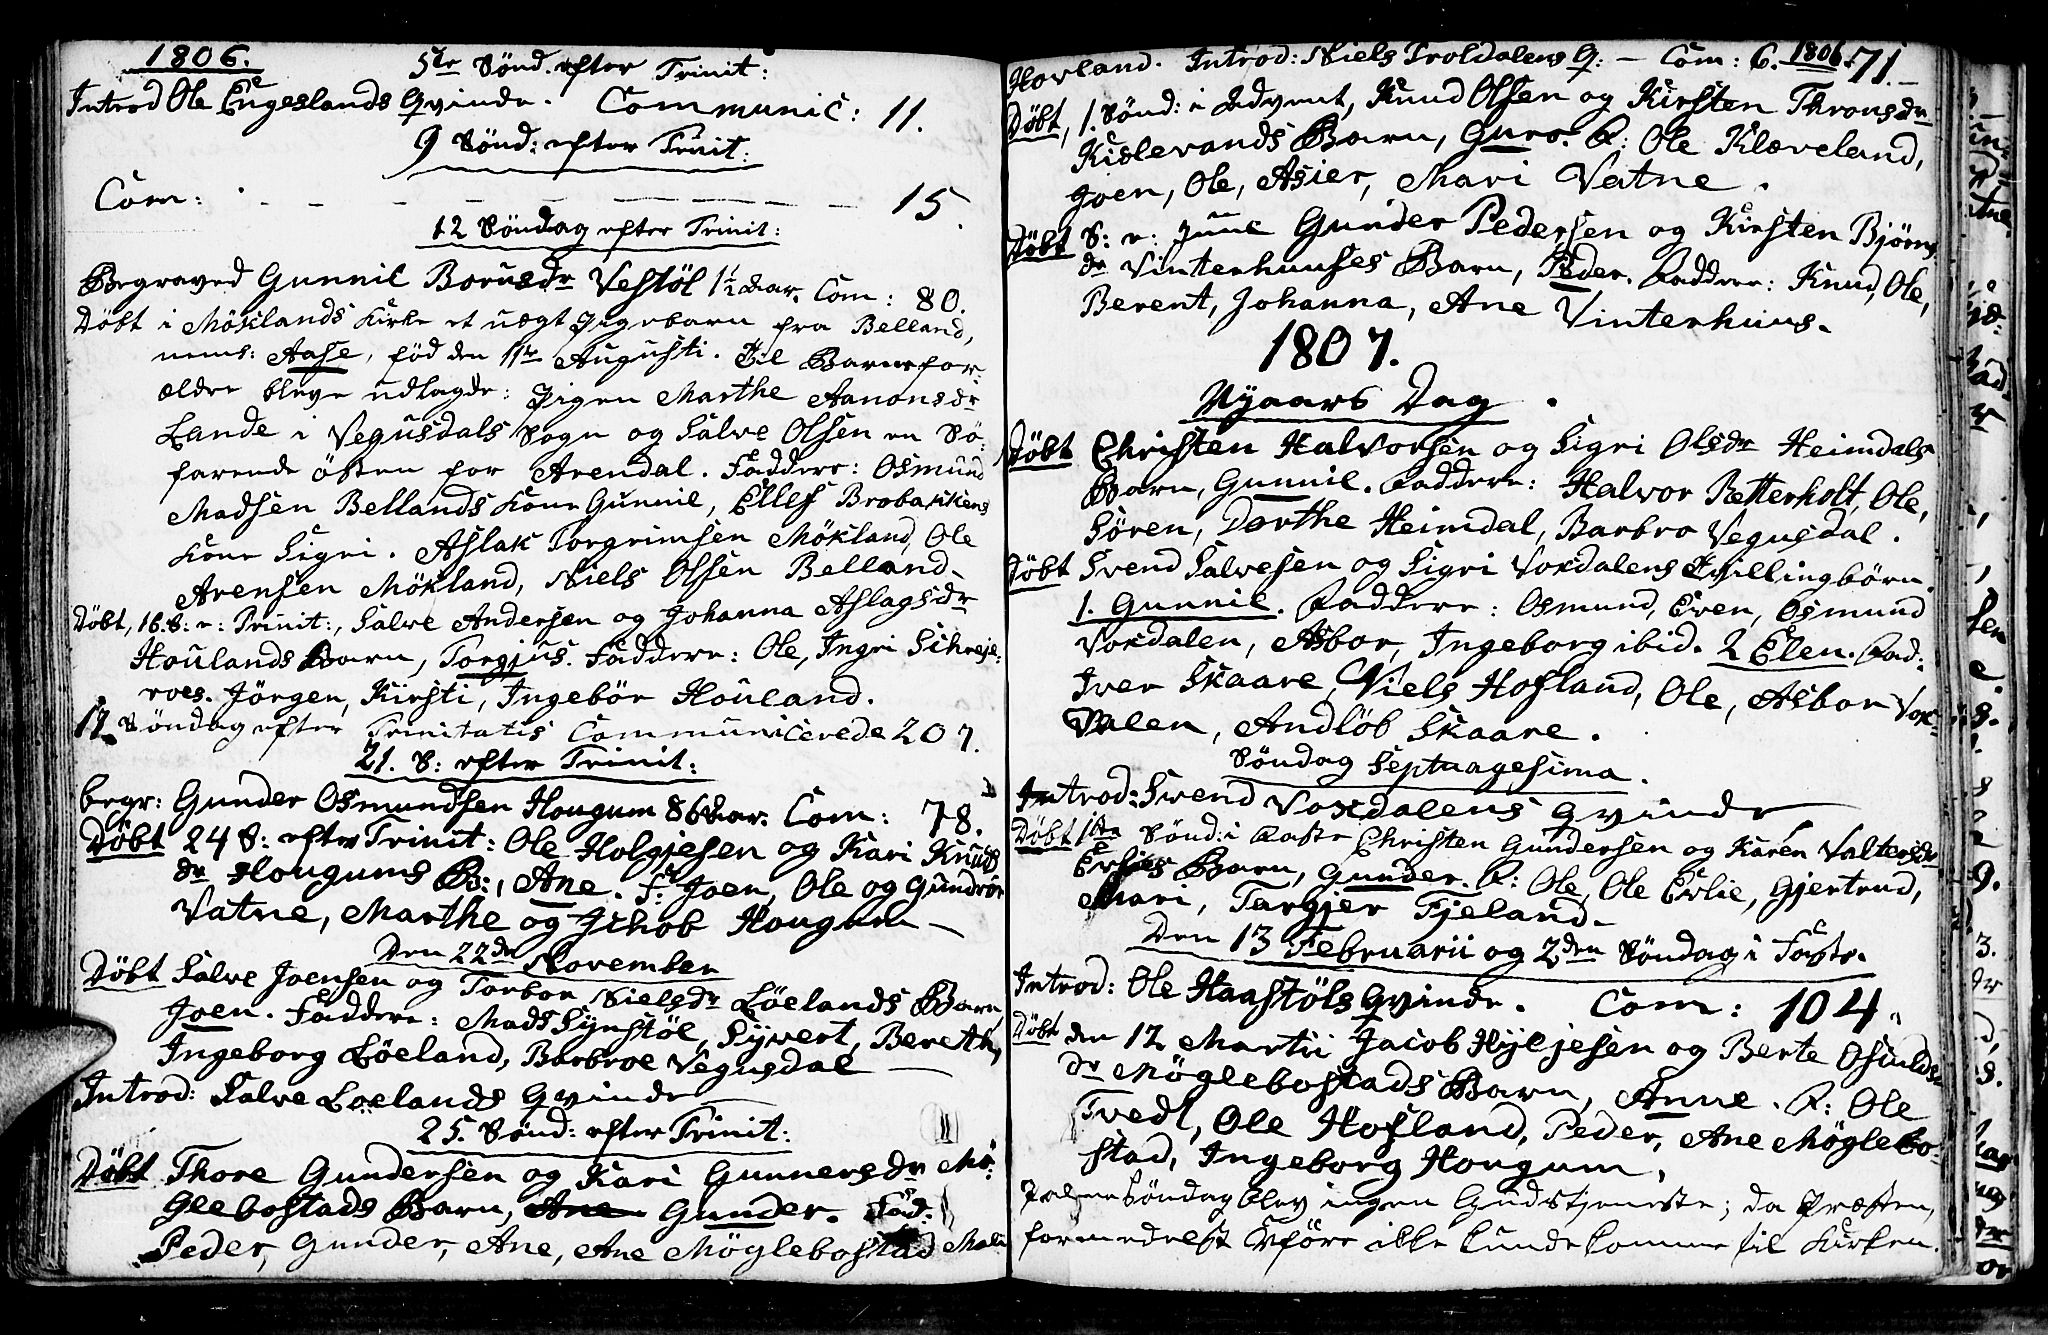 1806.
5te Sönd. efter Trinit:
Introd Ole Engeslands Qvinde. Communic: 11.
9 Sönd: efter Trinit:
Com: 15.
12 Söndag efter Trinit:
Begraved Gunnil Borusdr Vestöl 1½ Aar. Com: 80.
Döbt i Möklands Kirke et uægt Pigebarn fra Belland,
nems: Aase, föd den 11te Augusti. Til Barnefor-
ældre bleve udlagde: Pigen Marthe Aanonsdr
Lande i Vegusdals Sogn og Salve Olsen en Sö-
farende östen for Arendal. Faddere: Osmund
Madsen Bellands Kone Gunnil, Ellef Brobakkens
Kone Sigri. Aslak Torgrimsen Mökland, Ole
Arensen Mökland, Niels Olsen Belland.
Döbt, 16. S: e: Trinit:, Salve Andersen og Johanna Aslagsdr
Houlands Barn, Torgjus. Faddere: Ole, Ingri Schreje-
roes. Jörgen, Kirsti, Ingebör Houland.
17 Söndag efter Trinitatis Communicerede 207.
21. S: efter Trinit:
begr: Gunder Osmundsen Hougum 86 Aar. Com: 78.
Döbt 24 S: efter Trinit: Ole Holgjesen og Kari Knuds
dr Hougums B:, Ane. F: Joen, Ole og Gundrör
Vatne, Marthe og Jehob Hougum
Den 22de November
Döbt Salve Joensen og Torbor Nielsdr Löelands Barn,
Joen. Faddere: Mads Synstöl, Syvert, Bereth,
Ingeborg Löeland, Barbroe Vegusdal
Introd: Salve Loelands Qvinde
25. Sönd: efter Trinit:
Döbt Thore Gundersen og Kari Gunnersdr Mö-
glebostads Barn, Ane Gunder. Fad:
Peder, Gunder, Ane, Ane Möglebostad
Hovland. Introd: Niels Troldalens Q: – Com: 6. 1806. 71.
Döbt, 1. Sönd: i Advent, Knud Olsen og Kirsten Thronsdr
Kislevands Barn, Guro. F: Ole Klæveland,
Joen, Ole, Asier, Mari Vatne.
Döbt S: e: Juul Gunder Pedersen og Kirsten Björns
dr Vinterhuuses Barn, Peder. Faddere: Knud, Ole,
Berent, Johanna, Ane Vinterhuus.
1807.
Nyaars Dag.
Döbt Christen Halvorsen og Sigri Olsdr Heimdals
Barn, Gunnil. Faddere: Halvor Retterholt, Ole,
Sören, Dorthe Heimdal, Barbro Vegusdal.
Döbt Svend Salvesen og Sigri Voxdalens Tvillingbörn
1. Gunnil. Faddere: Osmund, Even, Osmund
Voxdalen, Asbor, Ingeborg ibid. 2 Elen. Fad:
Iver Skaare, Niels Hofland, Ole, Asbor Vox-
dalen, Andlöb Skaare.
Söndag Septuagesima.
Introd: Svend Voxdalens Qvinde
Döbt 1ste Sönd: i Faste Christen Gundersen og Karen Valtersdr
Erlies Barn, Gunder. F: Ole, Ole Erlie, Gjertrud,
Mari, Targjer Fjeland.
Den 13 Februarii og 2den Söndag i Faste.
Introd: Ole Haastöls Qvinde. Com: 104.
Döbt den 12 Martii Jacob Hyljesen og Berte Osulds
dr Möglebostads Barn, Anne. F: Ole
Tvedt, Ole Hofland, Peder, Ane Möglebo-
stad, Ingeborg Hougum.
Palme Söndag blev ingen Gudstjeneste; da Præsten,
formedelst Uföre ikke kunde komme til Kirken.